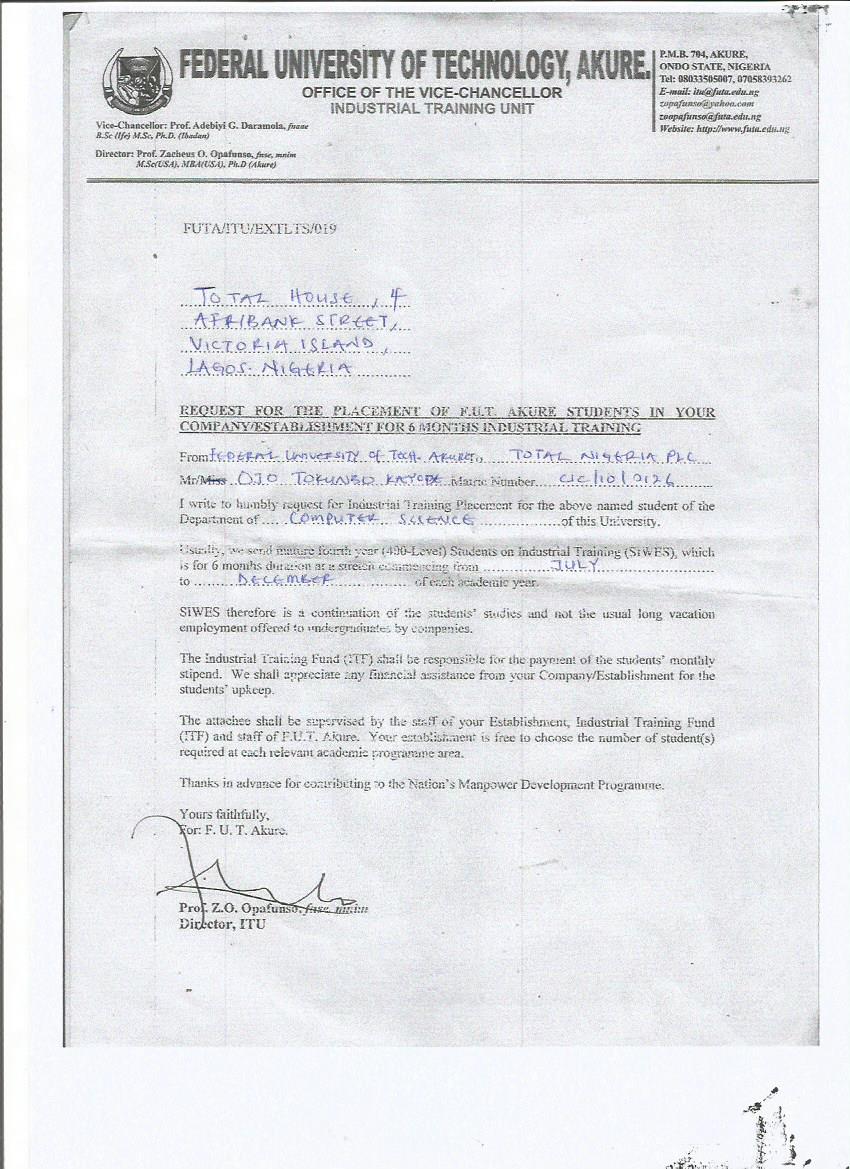 FEDERAL UNIVERSITY OF TECHNOLOGY, AKURE.
OFFICE OF THE VICE-CHANCELLOR
INDUSTRIAL TRAINING UNIT
P.M.B. 704, AKURE,
ONDO STATE, NIGERIA
Tel: 08033505007, 07058393262
E-mail: itu@futa.edu.ng
zopafunso@yahoo.com
zoopafunso@futa.edu.ng
Website: http://www.futa.edu.ng
Vice-Chancellor: Prof. Adebiyi G. Daramola, fnaae
B.Sc (Ife) M.Sc, Ph.D. (Ibadan)
Director: Prof. Zacheus O. Opafunso, fnse, mnim
M.Sc(USA), MBA(USA), Ph.D (Akure)
FUTA/ITU/EXTLTS/019
TOTAL HOUSE, 4
AFRIBANK STREET,
VICTORIA ISLAND,
LAGOS. NIGERIA
REQUEST FOR THE PLACEMENT OF F.U.T. AKURE STUDENTS IN YOUR
COMPANY/ESTABLISHMENT FOR 6 MONTHS INDUSTRIAL TRAINING
From FEDERAL UNIVERSITY OF TECH. AKURE To, TOTAL NIGERIA PLC
Mr/Miss OJO TOKUNBO KAYODE Matric Number
I write to humbly request for Industrial Training Placement for the above named student of the
Department of COMPUTER SCIENCE of this University.
Usually, we send mature fourth year (400-Level) Students on Industrial Training (SIWES), which
is for 6 months duration at a stretch commencing from JULY
to DECEMBER of each academic year.
SIWES therefore is a continuation of the students' studies and not the usual long vacation
employment offered to undergraduates by companies.
The Industrial Training Fund (ITF) shall be responsible for the payment of the students' monthly
stipend. We shall appreciate any financial assistance from your Company/Establishment for the
students' upkeep.
The attachee shall be supervised by the staff of your Establishment, Industrial Training Fund
(ITF) and staff of F.U.T. Akure. Your establishment is free to choose the number of student(s)
required at each relevant academic programme area.
Thanks in advance for contributing to the Nation's Manpower Development Programme.
Yours faithfully,
For: F. U. T. Akure.
Prof. Z.O. Opafunso, fnse, mnim
Director, ITU